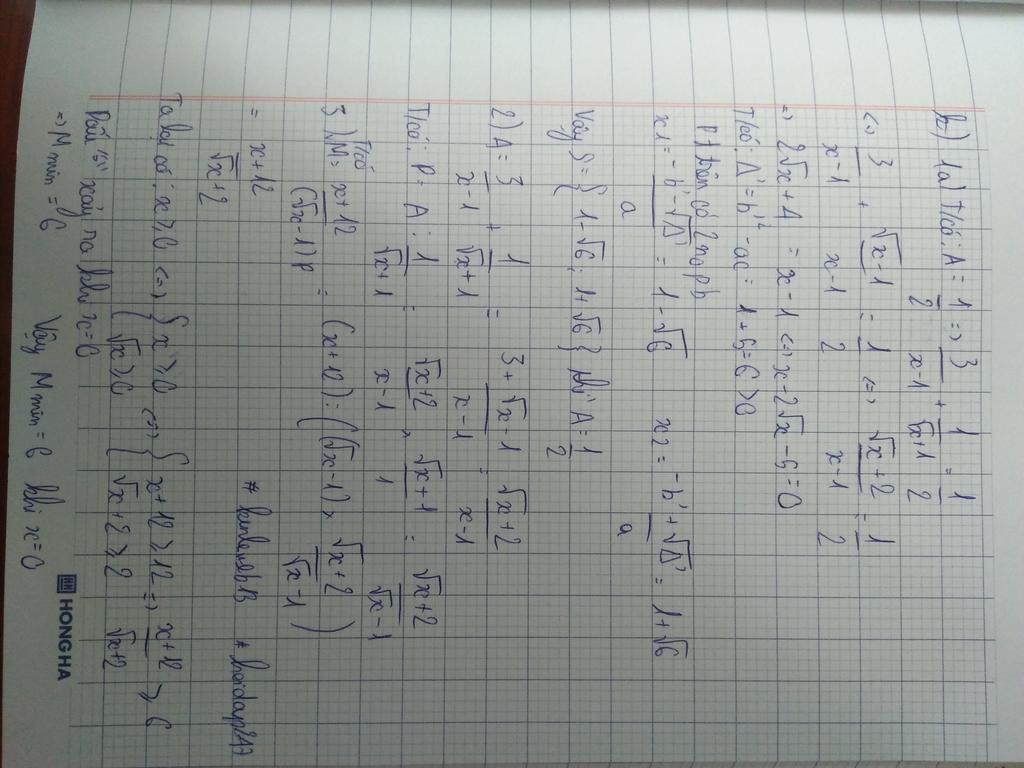 b) 1a) T/có: A = 1/2 => 3/(x-1) + 1/(√x+1) = 1/2
<=> 3/(x-1) + (√x-1)/(x-1) = 1/2 <=> (√x+2)/(x-1) = 1/2
=> 2√x+4 = x-1 <=> x-2√x-5=0
T/có: Δ' = b'² - ac = 1+5=6>0
Pt trên có 2 no pb
x1 = (-b'-√Δ')/a = 1-√6 x2 = (-b'+√Δ')/a = 1+√6
Vậy S = { 1-√6; 1+√6 } thì A = 1/2
2) A = 3/(x-1) + 1/(√x+1) = (3+√x-1)/(x-1) = (√x+2)/(x-1)
T/có: P = A : 1/(√x+1) = (√x+2)/(x-1) × (√x+1)/1 = (√x+2)/(√x-1)
T/có
3) M = (x+12)/((√x-1)P) = (x+12) : ((√x-1) × (√x+2)/(√x-1))
= (x+12)/(√x+2) # hoidap247
Ta lại có: x ≥ 0 <=> { x ≥ 0 √x ≥ 0 <=> { x+12 ≥ 12 √x+2 ≥ 2 => (x+12)/(√x+2) ≥ 6
Dấu "=" xảy ra khi x=0
=> M min = 6 Vậy M min = 6 khi x=0
HONG HA